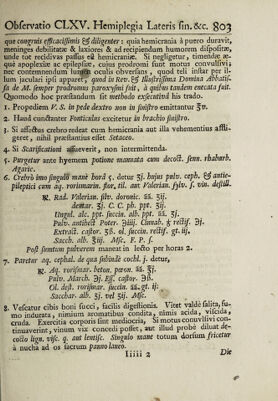 Observatio CLXV. Hemiplegia Lateris sin. &c. 803
que congruis efficacissimis & diligenter: quia hemicrania à puero duravit,
meninges debilitatæ & laxiores & ad recipiendum humorem dispositæ,
unde tot recidivas passus est hemicraniæ. Si negligatur, timendæ æ-
què apoplexiæ ac epilepsiæ, cujus prodromi sunt motus convulsivi
nec contemnendum lumen oculis obversans, quod teli instar per il-
lum jaculari ipsi apparet, quod in Rev. & Illustrissima Domina Abbatis-
sa de M. semper prodromus paroxysmi fuit, à quibus tandem evocata fuit.
Quomodo hoc præstandum sit methodo exsecutivâ his trado.
1. Propediem V. S. in pede dextro non in sinistro emittantur ℥v.
2. Hand cunctanter Fonticulus excitetur in brachio sinistro.
3. Si affectus crebro redeat cum hemicrania aut illa vehementius affli-
geret, nihil præstantius esset Setaceo.
4. Si Scarificationi assueverit, non intermittenda.
5. Purgetur ante hyemem potione mannata cum decoct. senn. rhabarb.
Agaric.
6. Crebrò imo singulò manè horâ 5. detur ℥j. hujus pulv. ceph. & antie-
pileptici cum aq. rorismarin. flor. til. aut Valerian. sylv. s. vin. destill.
℞. Rad. Valerian. silv. doronic. āā. ℥ij.
dictãr. ℥j. C. C. ph. ppt. ℥ij.
Ungul. alc. ppt. succin. alb. ppt. āā. ʒj.
Pulv. antilect Poter. ʒiiij. Cinnab. ♁ rectif. ʒj.
Extract. castor. ℥ß. ol. succin. rectif. gt. iij.
Sacch. alb. ℥iij. Misc. F. P. s.
Post sumtum pulverem maneat in lecto per horas 2.
7. Paretur aq. cephal. de qua subindè cochl. j. detur,
℞. Aq. rorismar. beton. pæon. āā. ℥j.
Pulv. March. ʒj. Ess. castor. ʒß.
Ol. dest. rorismar. succin. āā. gt. ij.
Sacchar. alb. ʒj. vel ℥ij. Misc.
8. Vescatur cibis boni succi, facilis digestionis. Vitet valdè salita, fu-
mo indurata, nimium aromatibus condita, nimis acida, viscida,
cruda. Exercitia corporis sint mediocria. Si motus convulsivi con-
tinuaverint, vinum vix concedi posset, aut illud probè diluat de-
cocto lign. visc. q. aut lentisc. Singulo mane totum dorsum fricetur
à nucha ad os sacrum panno laneo.
Iiiii 2 Die